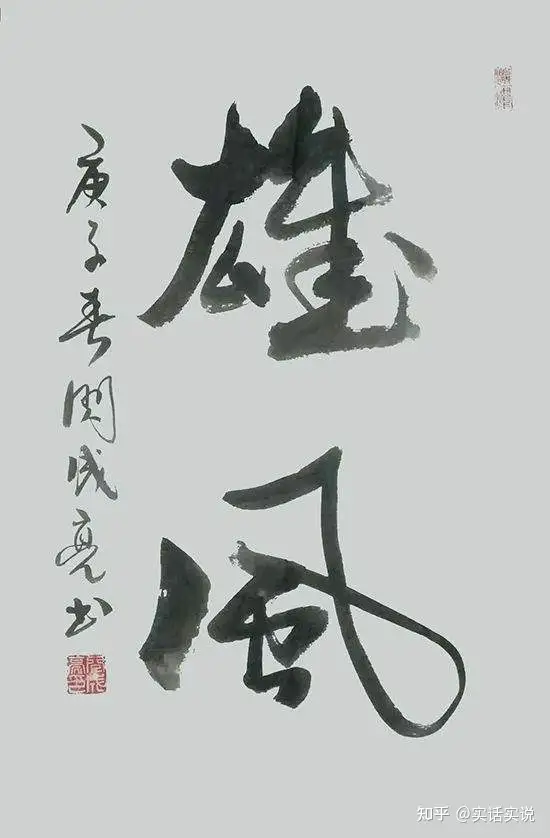 雄風
庚子春成亮书
知乎 @实话实说